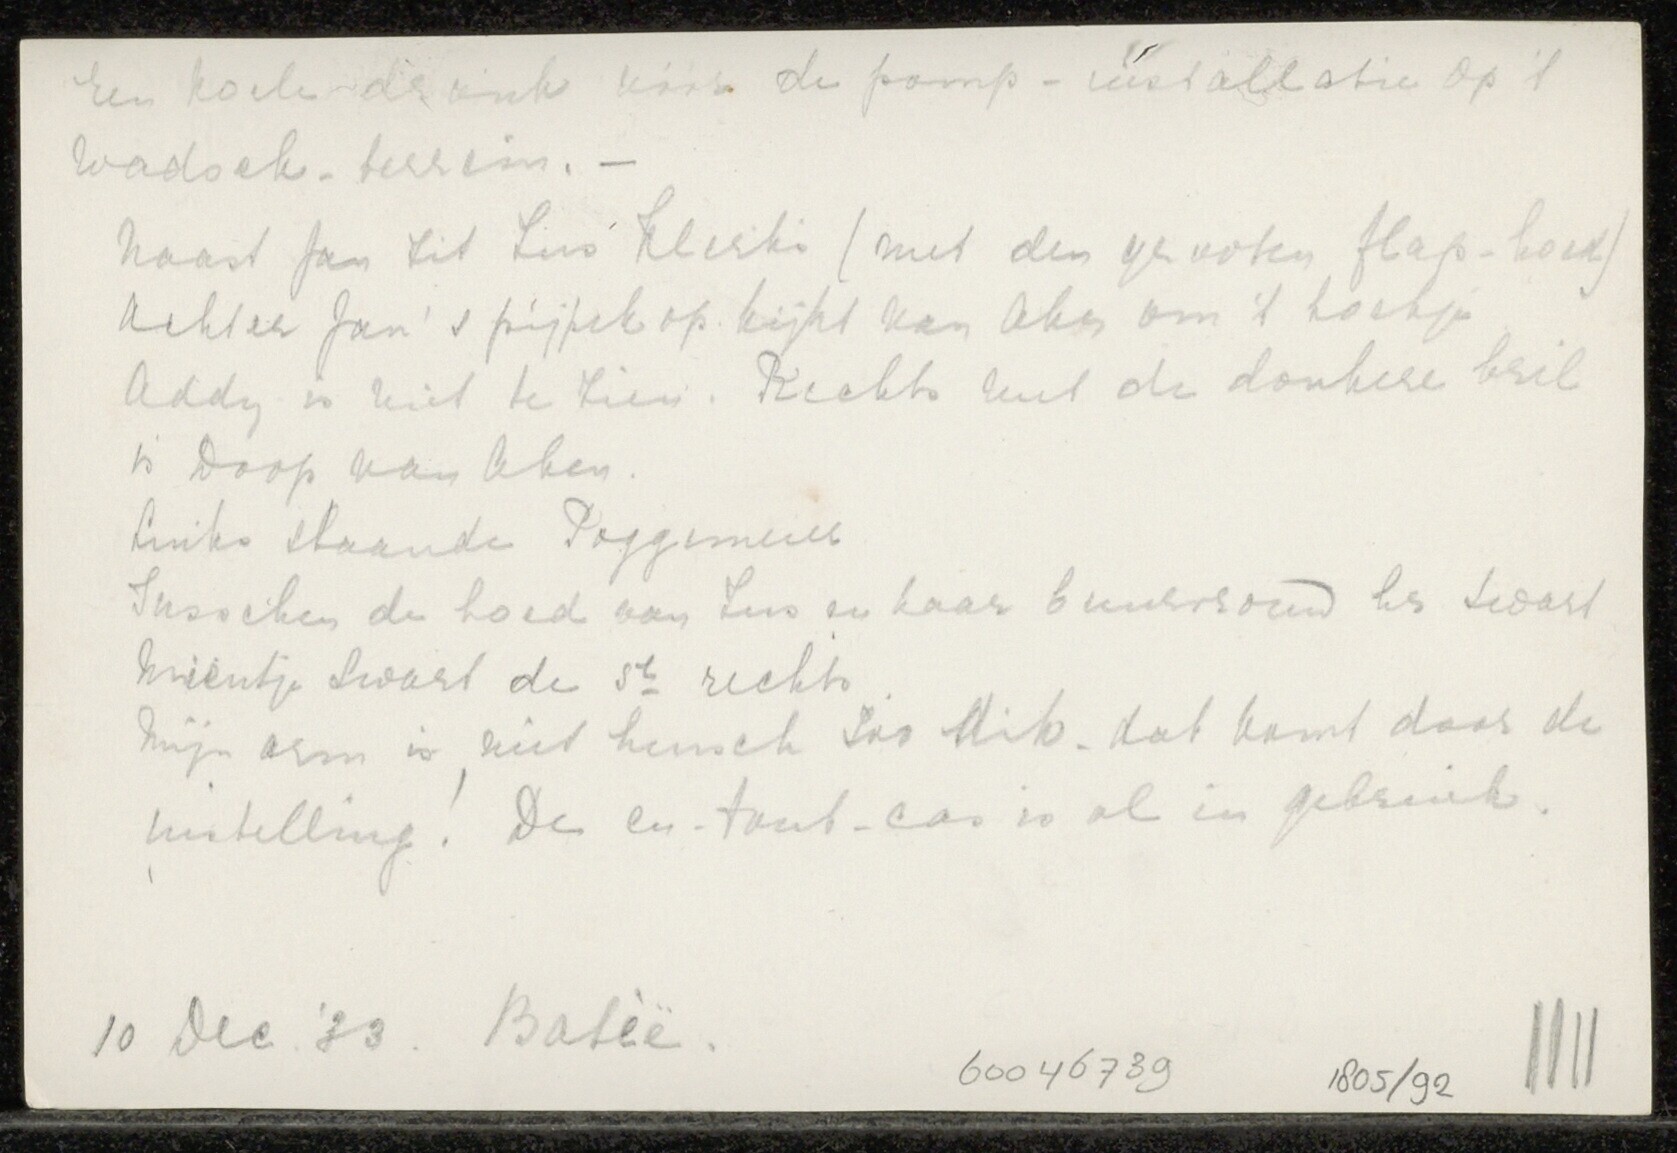 Een koele dronk vóór de pomp-installatie op 't
Waduck-terrein. —
Naast Jan zit Lus Klerks (met den grooten flap-hoed)
Achter Jan's pijpekop kijkt van Aken om 't hoekje
Addy is niet te zien. Rechts met de donkere bril
is Doop van Aken.
Links staande Poggemeier
Tusschen de hoed van Lus en haar buurvrouw hr Swart
Mientje Swart de 5e rechts.
Mijn arm is niet heusch zoo dik. dat komt door de
instelling! De en-tout-cas is al in gebruik.
10 Dec '33. Batoë.
60046739
1805/92